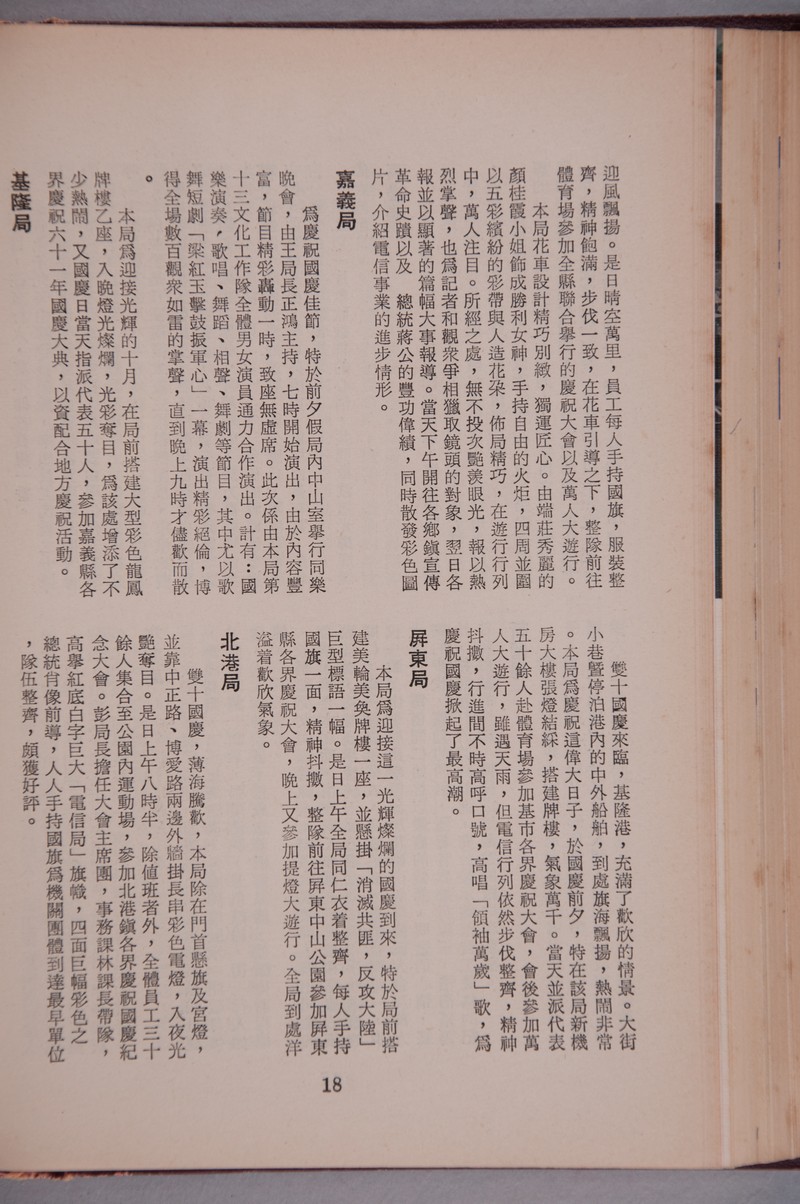 迎風飄揚。是日晴空萬里，員工每人手持國旗，服裝整
齊，精神飽滿，步伐一致，在花車引導之下，整隊前往
體育場參加全縣聯合舉行的慶祝大會以及萬人大遊行。
本局花車設計精巧別緻，獨運匠心。由端莊秀麗的
顏桂霞小姐飾成勝利女神，手持自由的火炬，四周並圍
以五彩繽紛的彩帶與人造花朶，佈局精巧，在遊行行列
中，萬人注目。所經之處，無不投次艷羡眼光，報以熱
烈掌聲，也爲記者和觀衆爭相獵取鏡頭的對象，翌日各
報並以顯著的篇幅大事報導。當天下午開往各鄉鎭宣傳
革命史蹟以及　總統蔣公的豐功偉績，同時散發彩色圖
片，介紹電信事業的進步情形。
嘉義局
爲慶祝國慶佳節，特於前夕假局內中山室舉行同樂
晩會，由王局長正鴻主持，七時開始演出，由於內容豐
富，節目精彩轟動一時，致座無虛席。此次係由本局第
十三文化工作隊全體男女演員通力合作演出。計有：國
樂演奏，歌唱、舞蹈、相聲、舞劇等節目，其中尤以歌
舞短劇「梁紅玉擊鼓振軍心」一幕，演出精彩絕倫，博
得全場數百觀衆如雷的掌聲，直到晩上九時才儘歡而散
。
本局爲迎接光輝的十月，在局前搭建大型彩色龍鳳
牌樓乙座，入晩燈光燦爛，光彩奪目，爲該處增添了不
少熱鬧，又國慶日當天指派代表五十人，參加嘉義縣各
界慶祝六十一年國慶大典，以資配合地方慶祝活動。
基隆局
雙十國慶來臨，基隆港，充滿了歡欣的情景。大街
小巷暨停泊港內的中外船舶，到處旗海飄揚，熱鬧非常
。本局爲慶祝這偉大日子，於國慶前夕，特在該局新機
房大樓張燈結綵，搭建牌樓，氣象萬千。當天並派代表
五十餘人赴體育場參加基市各界慶祝大會，會後參加萬
人大遊行，雖遇天雨，但電信行列依然步伐整齊，精神
抖擻，行進間不時高呼口號，高唱「領袖萬歲」歌，爲
慶祝國慶掀起了最高潮。
屏東局
本局爲迎接這一光輝燦爛的國慶到來，特於局前搭
建美輪美奐牌樓一座，並懸掛「消滅共匪，反攻大陸」
巨型標語一幅。是日上午全局同仁衣着整齊，每人手持
國旗一面，精神抖擻，整隊前往屏東中山公園參加屏東
縣各界慶祝大會，晩上又參加提燈大遊行。全局到處洋
溢着歡欣氣象。
北港局
雙十國慶，薄海騰歡，本局除在門首懸旗及宮燈，
並靠中正路、博愛路兩邊外牆掛長串彩色電燈，入夜光
艷奪目。是日上午八時半，除値班者外，全體員工三十
餘人集合至公園內運動場，參加北港鎭各界慶祝國慶紀
念大會。彭局長擔任大會主席團，事務課林課長帶隊，
高擧紅底白字巨大「電信局」旗幟，四面巨幅彩色之
總統肖像前導，人人手持國旗爲機關團體到達最早單位
，隊伍整齊，頗獲好評。
18